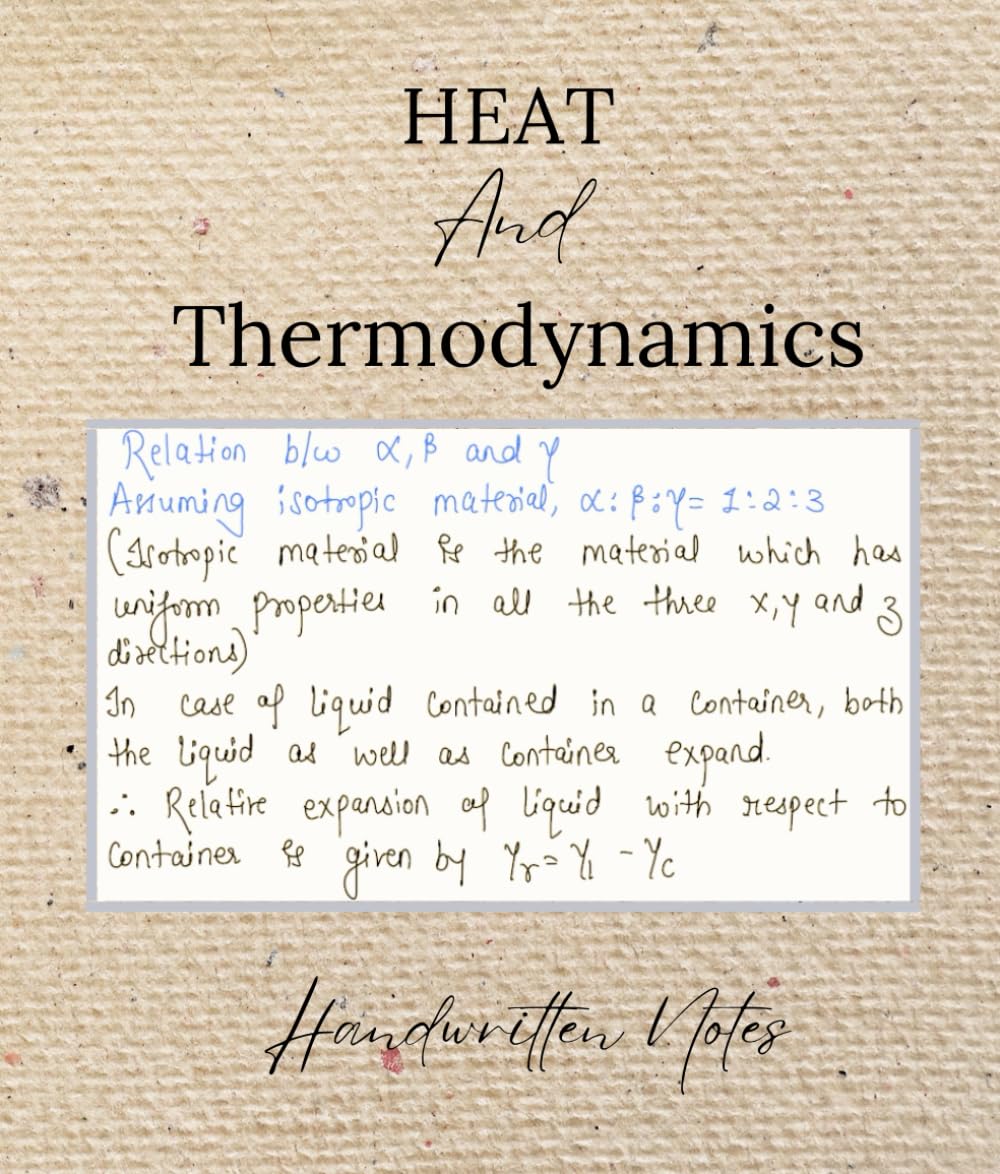 HEAT
And
Thermodynamics
Relation b/w α, β and γ
Assuming isotropic material, α: β:γ= 1:2:3
(Isotropic material is the material which has
uniform properties in all the three x,y and z
directions)
In case of liquid contained in a container, both
the liquid as well as container expand.
∴ Relative expansion of liquid with respect to
container is given by γr= γl - γc
Handwritten Notes